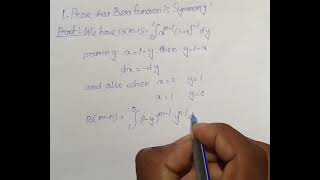 1. Prove that Beta function is Symmetry!
Proof:- We have B(m,n) = ∫₀¹ x^{m-1} (1-x)^{n-1} dx
putting x = 1-y then y = 1-x
dx = -dy
and also when x=0 y=1
x=1 y=0
B(m,n) = ∫₁⁰ (1-y)^{m-1} y^{n-1}